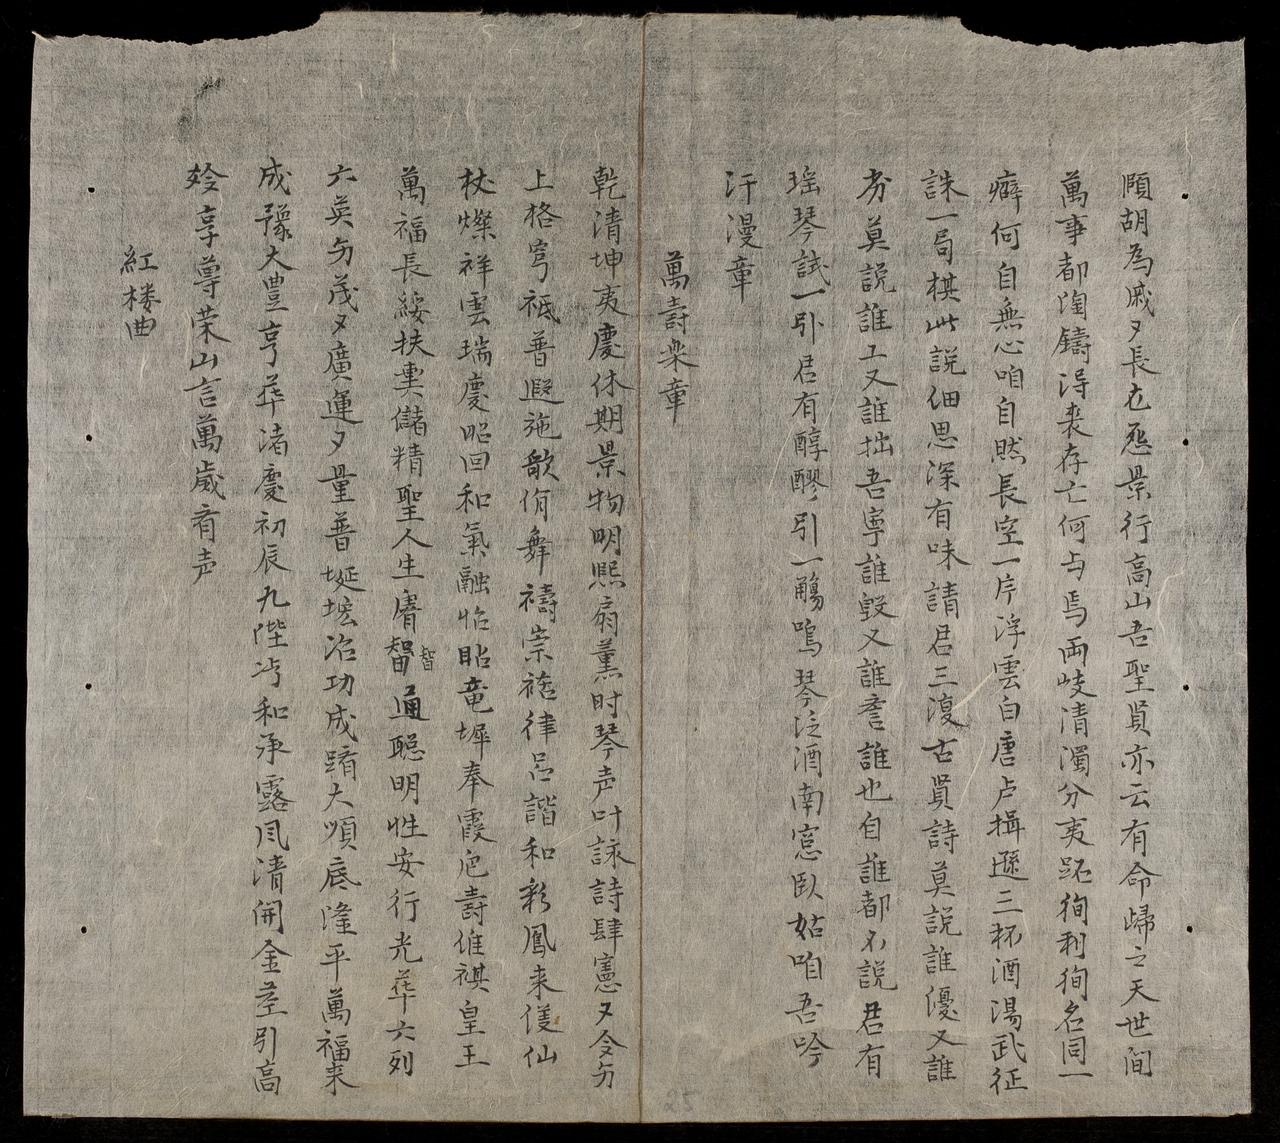 頤胡為戚〻長在㤙景行高山吾聖貟亦云有命歸之天世间
萬事都陶鑄淂丧存亡何与焉両岐清濁分夷跖徇利徇名同一
癖何自無心咱自然長空一片浮雲白唐卢揖遜三杯酒湯武征
誅一局棋此說佃思深有味請君三復古貟詩莫説誰優又誰
劣莫説誰工又誰拙吾寧誰毀又誰誉誰也自誰都不説君有
瑶琴試一引君有醇醪引一觴鳴琴泛酒南窓臥姑咱吾吟
汗漫章
萬壽楽章
乾清坤夷慶休期景物明熙扇薰时琴声叶詠詩肆憲〻令旬
上格穹祇普遐施歆佾舞禱崇禧律吕諧和彩鳳来傞仙
杖燦祥雲瑞慶昭回和氣融怡䀡竜墀奉霞卮壽維祺皇王
萬福長綏扶輿儲精聖人生睿智通聦明性安行光華六列
智
六英旬茂〻廣運〻量普埏垓治功成蹐大順底隆平萬福来
成豫大豊亨華渚慶初辰九陛冲和承露凬清開金莖引高
姈享尊荣山言萬歲有声
紅楼曲
25